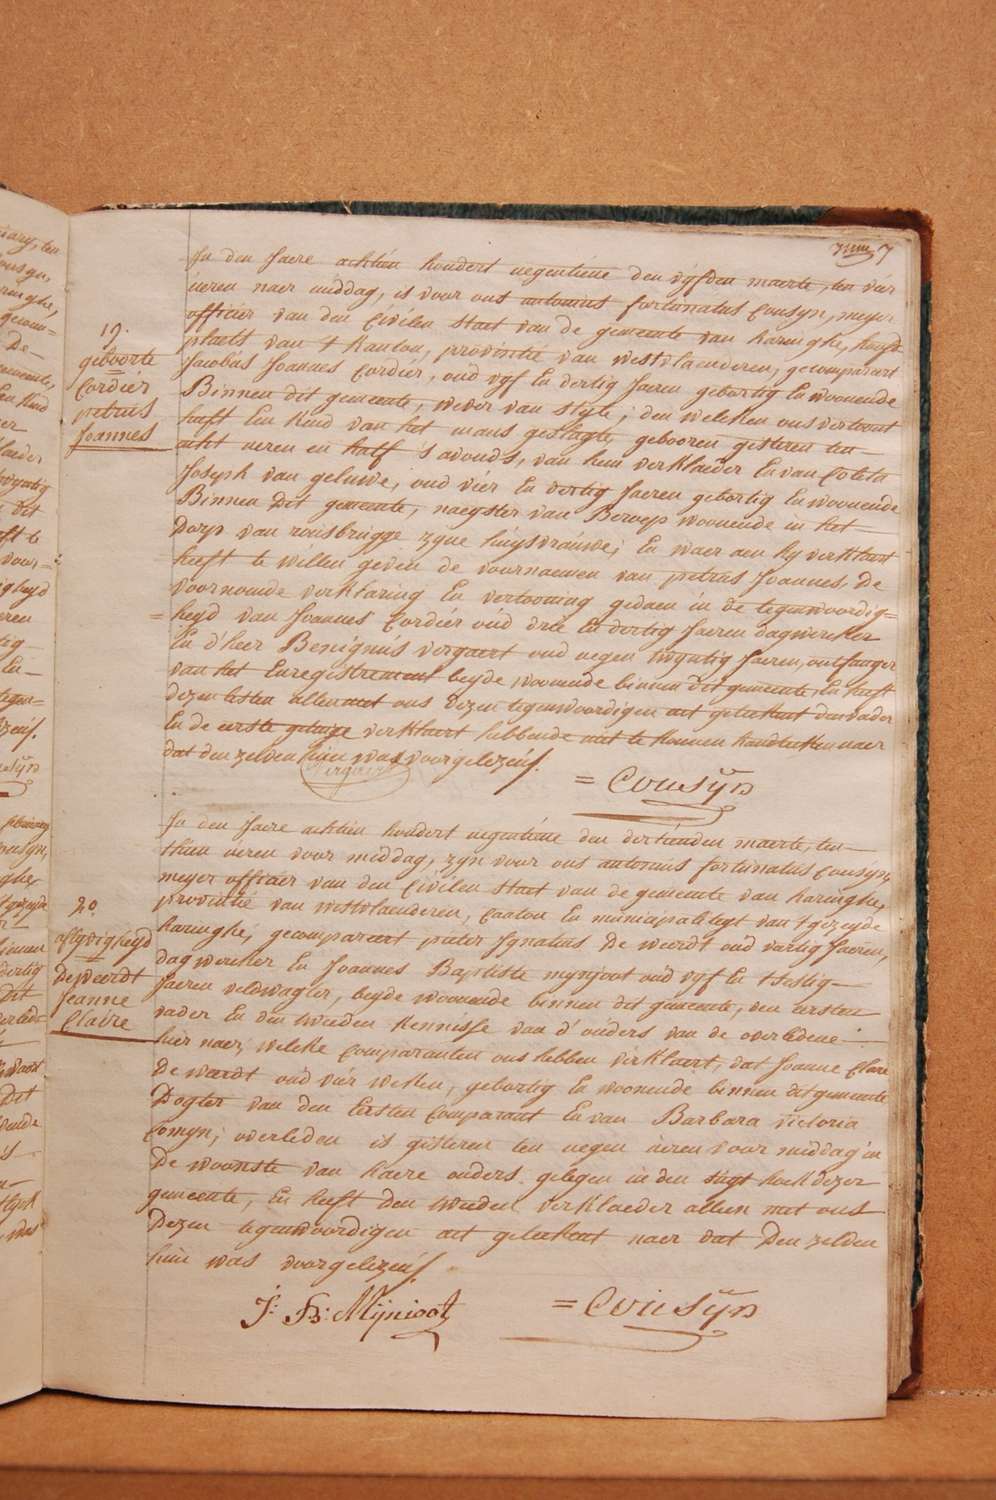 7
19.
geboorte
Cordier
petrus
Joannes
In den Jaere achtien hondert negentiene den vyfden maerte, ten vier
ueren naer middag, is voor ons antonius fortunatus Cousyn, meyer
officier van den Civilen staet van de gemeente van haringhe, hooft
plaets van t kanton, provintie van westvlaenderen, gecompareert
Jacobus Joannes Cordier, oud vyf En dertig Jaeren gebortig En woonende
Binnen dit gemeente, wever van style; den welcken ons vertoont
heeft Een kind van het mans geslagte, gebooren gisteren ten
acht ueren en half s'avonds, van hem verklaeder En van Coleta
Joseph van geluwe, oud vier En dertig Jaeren gebortig En woonende
Binnen Dit gemeente, naeyster van Beroep woonende in het
Dorp van rousbrugge zyne huysvrauwe; En waer aen hy verklaert
heeft te willen geven de voornaemen van petrus Joannes, De
voornoemde verklaring En vertooning gedaen in de tegenwoordig=
=heyd van Joannes Cordier oud drie En dertig Jaeren dagwerker
En d'heer Benignus vergaert oud negen twyntig Jaeren, ontfanger
van het Enregistrement beyde woonende binnen dit gemeente, En heeft
dezen lesten alleen met ons dezen tegenwoordigen act geteekent den vader
En de eerste getuige verklaert hebbende niet te konnen handteeken naer
dat den zelven hun was voorgelezen.
= Cousyn
20
aflyvigheyd
De weerdt
Jeanne
Claire
In den Jaere achtien hondert negentiene den dertienden maerte, ten
thien ueren voor middag, zyn voor ons antonius fortunatus Cousyn,
meyer officier van den Civilen staet van de gemeente van haringhe,
provintie van westvlaenderen, Canton En municipaliteyt van t gezeyde
haringhe, gecompareert pieter Ignatius De weerdt oud vartig Jaeren,
dagwercker En Joannes Baptiste mynjoot oud vyf En tsestig
Jaeren veldwagter, beyde woonende binnen dit gemeente, den eersten
vader En den tweeden kennisse van d'ouders van de overledene
hier naer, welcke Comparanten ons hebben verklaert, dat Joanne Clare
De weerdt oud vier weken, gebortig En woonende binnen dit gemeente
Dogter van den Eersten Comparant En van Barbara victoria
Comyn; overleden is gisteren ten negen ueren voor middag in
De woonste van haere ouders gelegen in den hoek dezer
gemeente, En heeft den tweeden verklaeder alleen met ons
Dezen tegenwoordigen act geteekent naer dat Den zelden
hun was voorgelezen.
J: B: Mijnjoot
= Cousyn